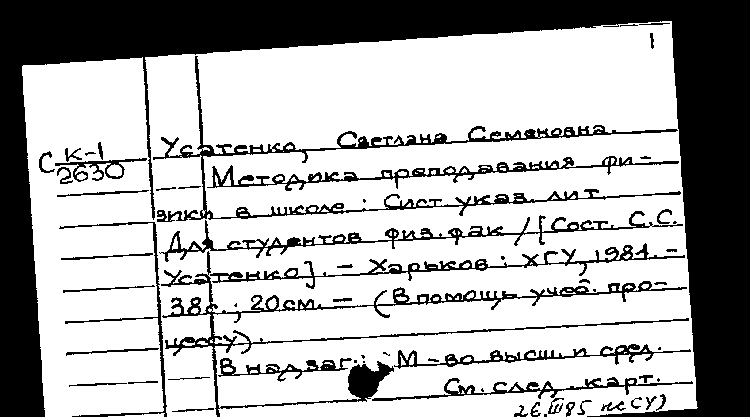 1
Усатенко, Светлана Семеновна.
С К-1
2630
Методика преподавания фи-
зики в школе : Сист указ. лит.
Для студентов физ. фак / [Сост. С.С.
Усатенко]. – Харьков : ХГУ, 1984. –
38с. ; 20см. – (В помощь учеб. про-
цессу).
В надзаг.: М-во высш. и сред.
См. след. карт.
26.III85